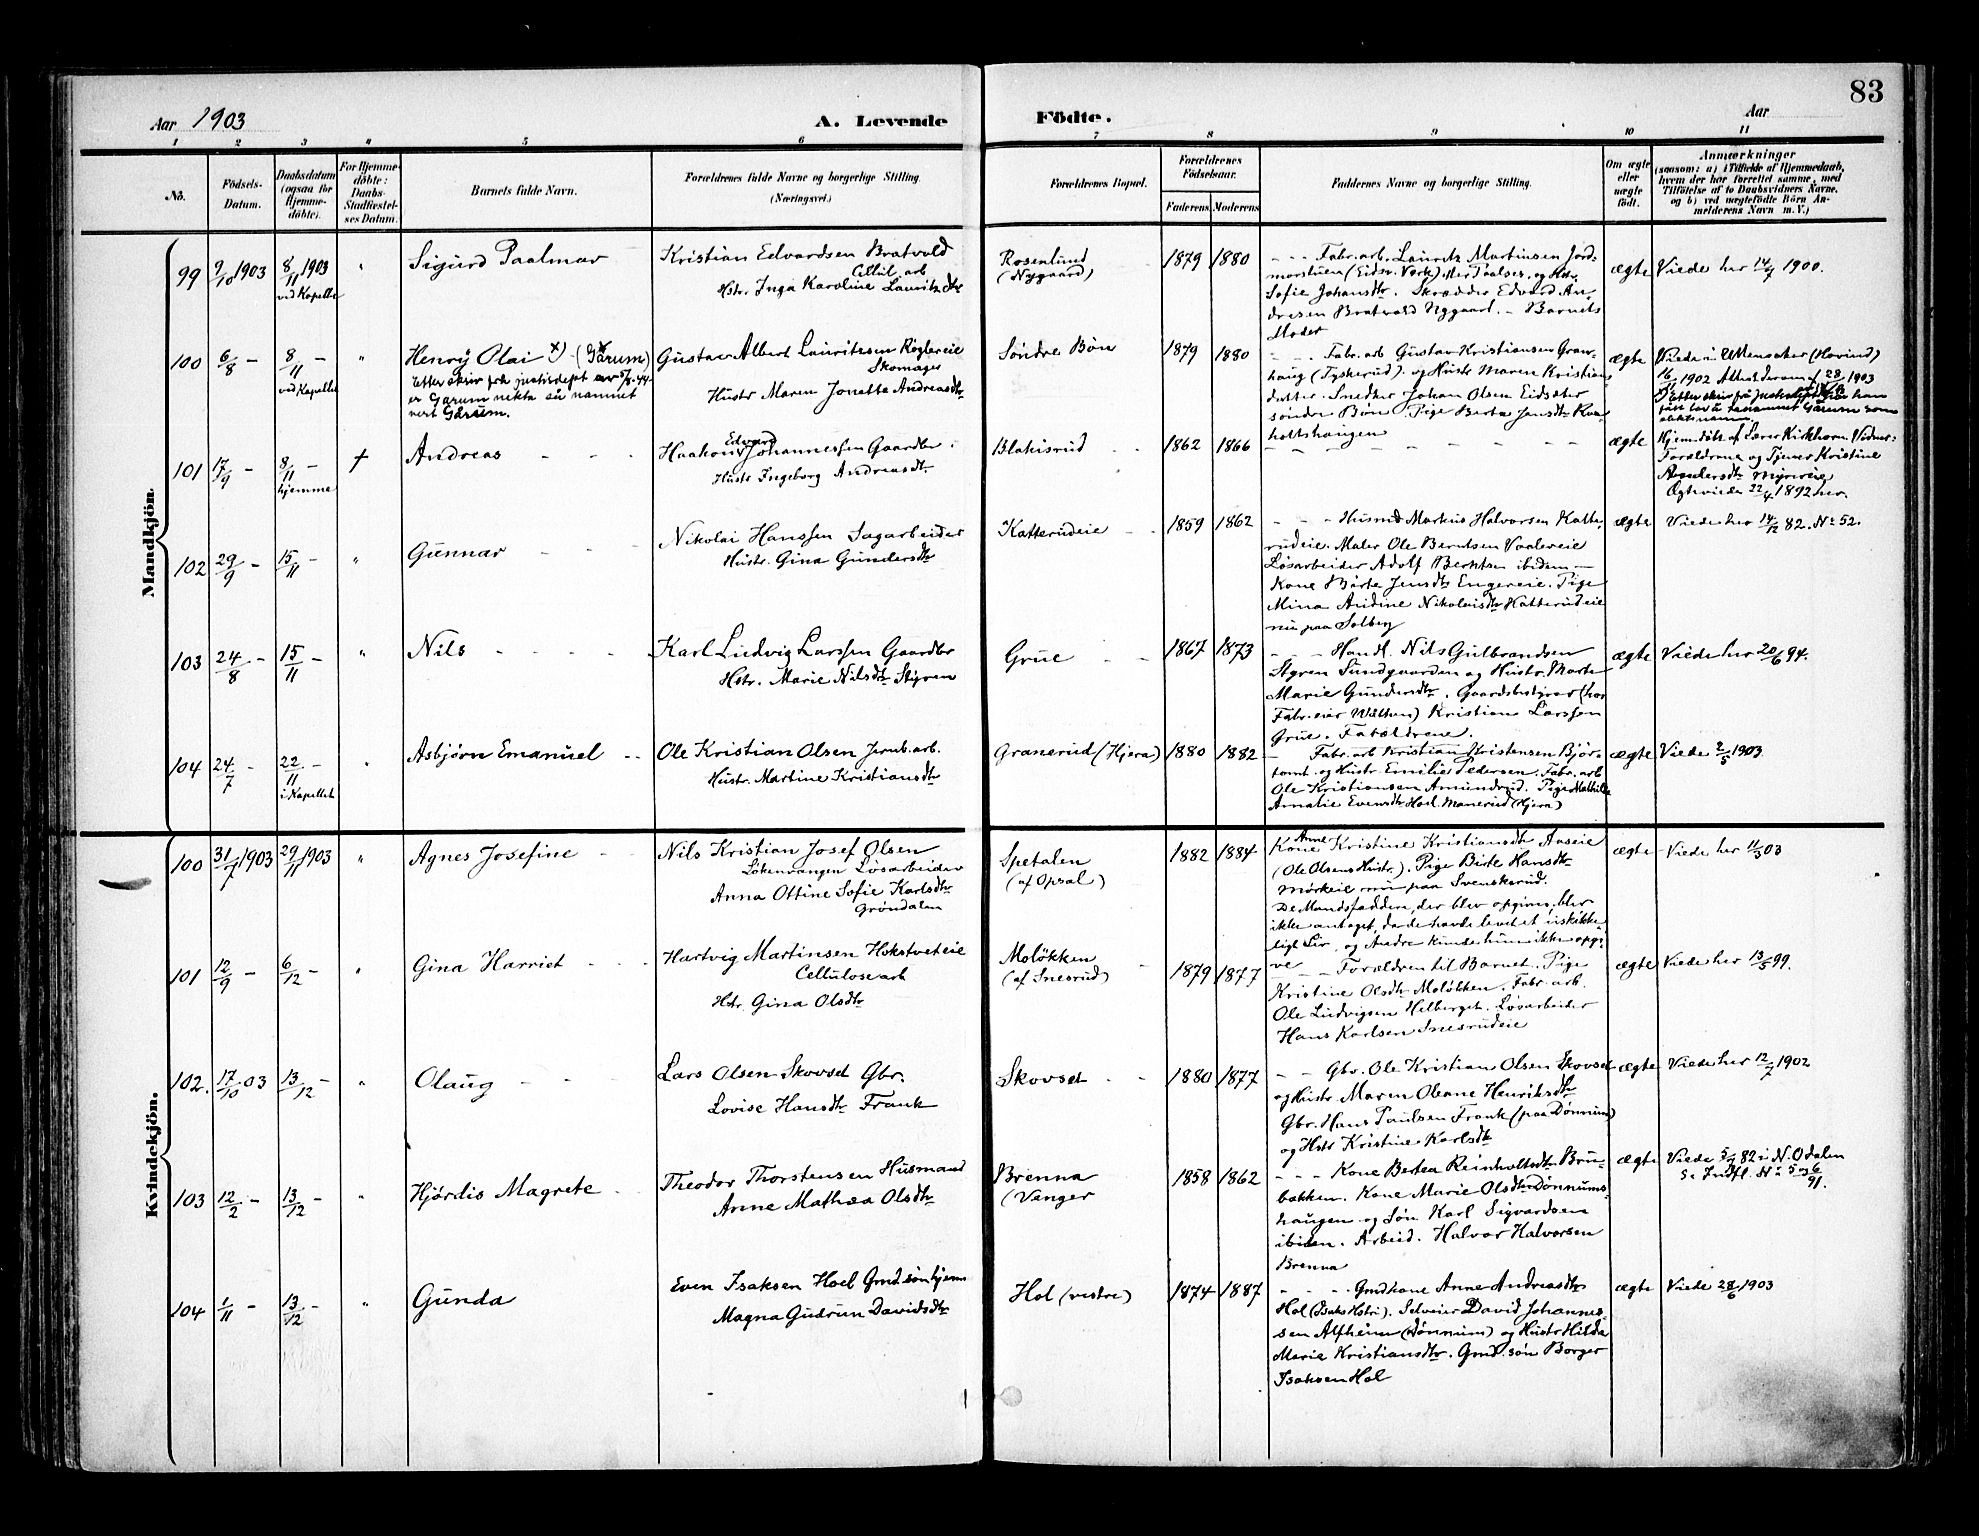 83
Aar 1903
A. Levende
Födte.
Aar
1 2 3 4 5 6 7 8 9 10 11
No.
Födsels-
Datum.
Daabsdatum
(ogsaa for
Hjemme-
döbte).
For Hjemme-
döbte:
Daabs-
Stadfæstel-
ses Datum.
Barnets fulde Navn.
Forældrenes fulde Navne og borgerlige Stilling.
(Næringsvei.)
Forældrenes Bopæl.
Forældrenes
Födselsaar.
Faderens Moderens
Faddernes Navne og borgerlige Stilling.
Om ægte
eller
uægte
födt.
Anmærkninger
(saasom: a) i Tilfælde af Hjemmedaab,
hvem der har forrettet samme, med
Tilföielse af to Daabsvidners Navne,
og b) ved uægtefödte Börn An-
melderens Navn m. V.)
Mandkjön.
99 9/10 1903 8/11 1903
ved Kapellet
Sigurd Paalmar
Kristian Edvardsen Bratvold
Cellul. arb
Hstr. Inga Karoline Lauritzdtr
Rosenlund
(Nygaard)
1879 1880
Fabr. arb. Lauritz Martinsen Jord-
morstuen (Eidsv. Værk)
Sofie Johansdtr. Skrædder Edvard An-
dresen Bratvold Nygaard. - Barnets
Moder
ægte Viede her 14/7 1900.
100 6/8 - 8/11 -
ved Kapellet
Henry Olai x) - (Gårum)
Etter skriv fra justisdept av 5/8-44
er Gårum nekta så namnet
vert Gårum.
Gustav Albert Lauritzsen Røglereie
Skomager
Hustr Maren Jonette Andreasdtr
Søndre Bøn
1879 1880
Fabr. arb Gustav Kristiansen Gran-
haug (Tyskerud). og Hustr Maren Kristians
datter. Snedker Johan Olsen Eidsæter
søndre Bøn. Pige Berta Jensdtr
holtshaugen
ægte Viede i Ullensaker (Hovind)
16/11 1902 28/8 1903
101 17/9 - 8/11 -
hjemme
†
Andreas
Haakon Edvard Johannessen Gaardbr.
Hustr Ingeborg Andreasdtr
Blakisrud
1862 1866
ægte Hjemdøbt af Lærer Kirkhorn. Vidner:
Forældrene og Tjener Kristine
Myreeie
Ægteviede 22/4 1892 her.
102 29/9 - 15/11 -
Gunnar
Nikolai Hanssen Sagarbeider
Hustr. Gina Gundersdtr
Katterudeie
1859 1862
Husmd Markus Halvorsen Katte-
rudeie. Maler Ole Berntsen Vaalereie
Løsarbeider Adolf Berntsen ibidem -
Kone Børte Jensdtr Engereie. Pige
Mina Andine Nikolaisdtr Katterudeie
nu paa Solberg
ægte Viede her 14/12 82. No 52.
103 24/8 - 15/11 -
Nils
Karl Ludvig Larssen Gaardbr
Hstr. Marie Nilsdtr Styren
Grue
1867 1873
Handl. Nils Gulbrandsen
Styren Sundgaarden og Hustr. Marte
Marie Gundersdtr. Gaardsbestyrer (hos
Fabr. eier Wethen) Kristian Larssen
Grue. Forældrene.
ægte Viede her 20/6 94.
104 24/7 - 22/11 -
i Kapellet
Asbjørn Emanuel
Ole Kristian Olsen Jernb. arb.
Hustr. Martine Kristiansdtr
Granerud (Hjera)
1880 1882
Fabr. arb Kristian Kristensen Bjør-
tomt. og Hustr Emilie Pedersen. Fabr. arb
Ole Kristiansen Amundrud. Pige Mathilde
Amalie Evensdtr Hoel. Manerud (Hjera)
ægte Viede 2/5 1903
Kvindekjön.
100 31/7 1903 29/11 1903
Agnes Josefine
Nils Kristian Josef Olsen
Løkenvangen Løsarbeider
Anna Ottine Sofie Karlsdtr
Grøndalen
Spetalen
(af Opsal)
1882 1884
Kone Anne Kristine Kristiansdtr Aaseie
(Ole Olsens Hustr.). Pige Birte Hansdtr
Mørkeie nu paa Svenskerud.
De Mandsfaddere, der blev opgivne, blev
ikke antaget, da de havde levet et uskikke-
ligt Liv, og Andre kunde hun ikke opgi-
ve
ægte Viede her 11/3 03
101 12/9 - 6/12 -
Gina Harriet
Hartvig Martinsen Hokstveteie
Cellulosearb
Hstr. Gina Olsdtr
Moløkken
(af Snesrud)
1879 1877
Forældren til Barnet. Pige
Kristine Olsdtr Moløkken. Fabr. arb.
Ole Ludvigsen Helberget. Løsarbeider
Hans Karlsen Snesrudeie
ægte Viede her 13/5 99.
102. 17/10 03 13/12 -
Olaug
Lars Olsen Skovset Gbr.
Lovise Hansdtr Frank
Skovset
1880 1877
Gbr. Ole Kristian Olsen Skovset
og Hustr. Maren Oleane Henriksdtr
Gbr. Hans Paulsen Frank (paa Dønnum)
og Hstr Kristine Karlsdtr
ægte Viede her 12/7 1902
103 12/2 - 13/12 -
Hjørdis Magrete
Theodor Thorstensen Husmand
Anne Mathea Olsdtr
Brenna
(Vanger
1858 1862
Kone Bertea Reinholtsdtr Bru-
bakken. Kone Marie Olsdtr Dønnums-
haugen og Søn Karl Sigvardsen
ibiden. Arbeid. Halvor Halvorsen
Brenna
ægte Viede 82 i N. Odalen
S. Indfl. No 5 og 6
91.
104 1/11 - 13/12 -
Gunda
Even Isaksen Hoel Gmd. søn hjem
Magna Gudrun Davidsdtr
Hol (vestre)
1874 1887
Gmdkone Anne Andreasdtr
Hol (Isaks Hstr.). Selveier David Johannes-
sen Alfheim (Dønnum) og Hustr Hilda
Marie Kristiansdtr. Gmd. søn Borger
Isaksen Hol
ægte Viede 28/6 1903